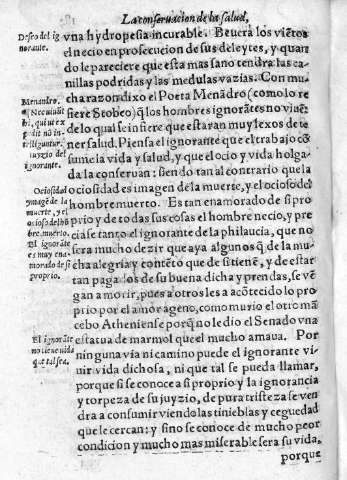 La conseruacion de la salud,
Deseo del ig
norante.
vna hydropesia incurable. Beuera los vietos
el necio en prosecucion de sus deleytes, y quan
do le pareciere que esta mas sano tendra las ca
nillas podridas y las medulas vazias. Con mu
Menandro.
cha razon dixo el Poeta Menãdro (como lo re
fiere Stobeo) q̃ los hombres ignorãtes no viuẽ
de lo qual se infiere que estaran muy lexos de te
ner salud. Piensa el ignorante que el trabajo cõ
iuyzio del
ignorante.
sume la vida y salud, y que el ocio y vida holga
da la conseruan: siendo tan al contrario que la
Ociosidad
ymagẽ de la
muerte, y el
ocioso delhõ
bre muerto.
ociosidad es imagen de la muerte, y el ocioso del
hombre muerto. Es tan enamorado de si pro
prio y de todas sus cosas el hombre necio, y pre
cia se tanto el ignorante de la philaucia, que no
El ignorãte
es muy ena-
morado de si
proprio.
sera mucho dezir que aya algunos q̃ de la mu-
cha alegria y contẽto que de si tienẽ, y de estar
tan pagados de su buena dicha y prendas, se vẽ
gan a morir, pues a otros les a acõtecido lo pro
prio por el amor ageno, como murio el otro mã
cebo Atheniense porq̃ no le dio el Senado vna
El ignorãte
no tiene vida
que tal sea.
estatua de marmol que el mucho amaua. Por
ninguna via ni camino puede el ignorante vi-
uir vida dichosa, ni que tal se pueda llamar,
porque si se conoce a si proprio y la ignorancia
y torpeza de su juyzio, de pura tristeza se ven
dra a consumir viendo las tinieblas y ceguedad
que le cercan: y sino se conoce de mucho peor
condicion y mucho mas miserable sera su vida,
porque